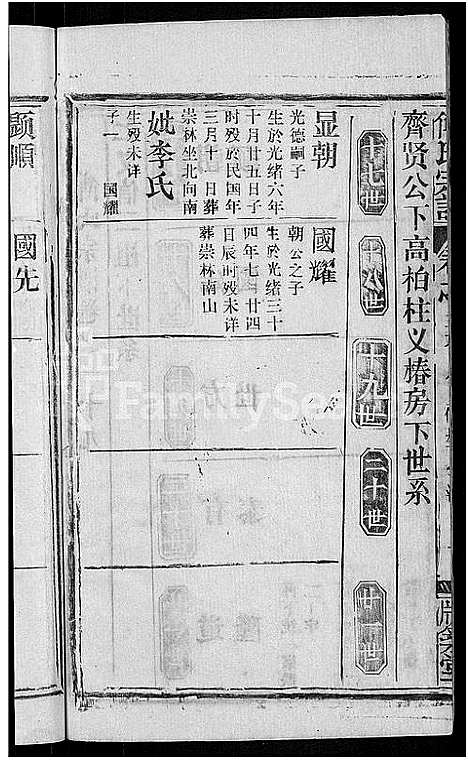 齊贤公下高柏柱义椿房下世系
十七世
十八世
十九世
二十世
廿一世
显朝
光德嗣子
生於光绪六年
十月廿五日子
时殁於民国年
三月十日葬
崇林坐北向南
妣李氏
生殁未详
子一
國耀
國耀
朝公之子
生於光绪三十
四年七月廿四
日辰时殁未详
葬崇林南山
顕順
國先
FamilySe